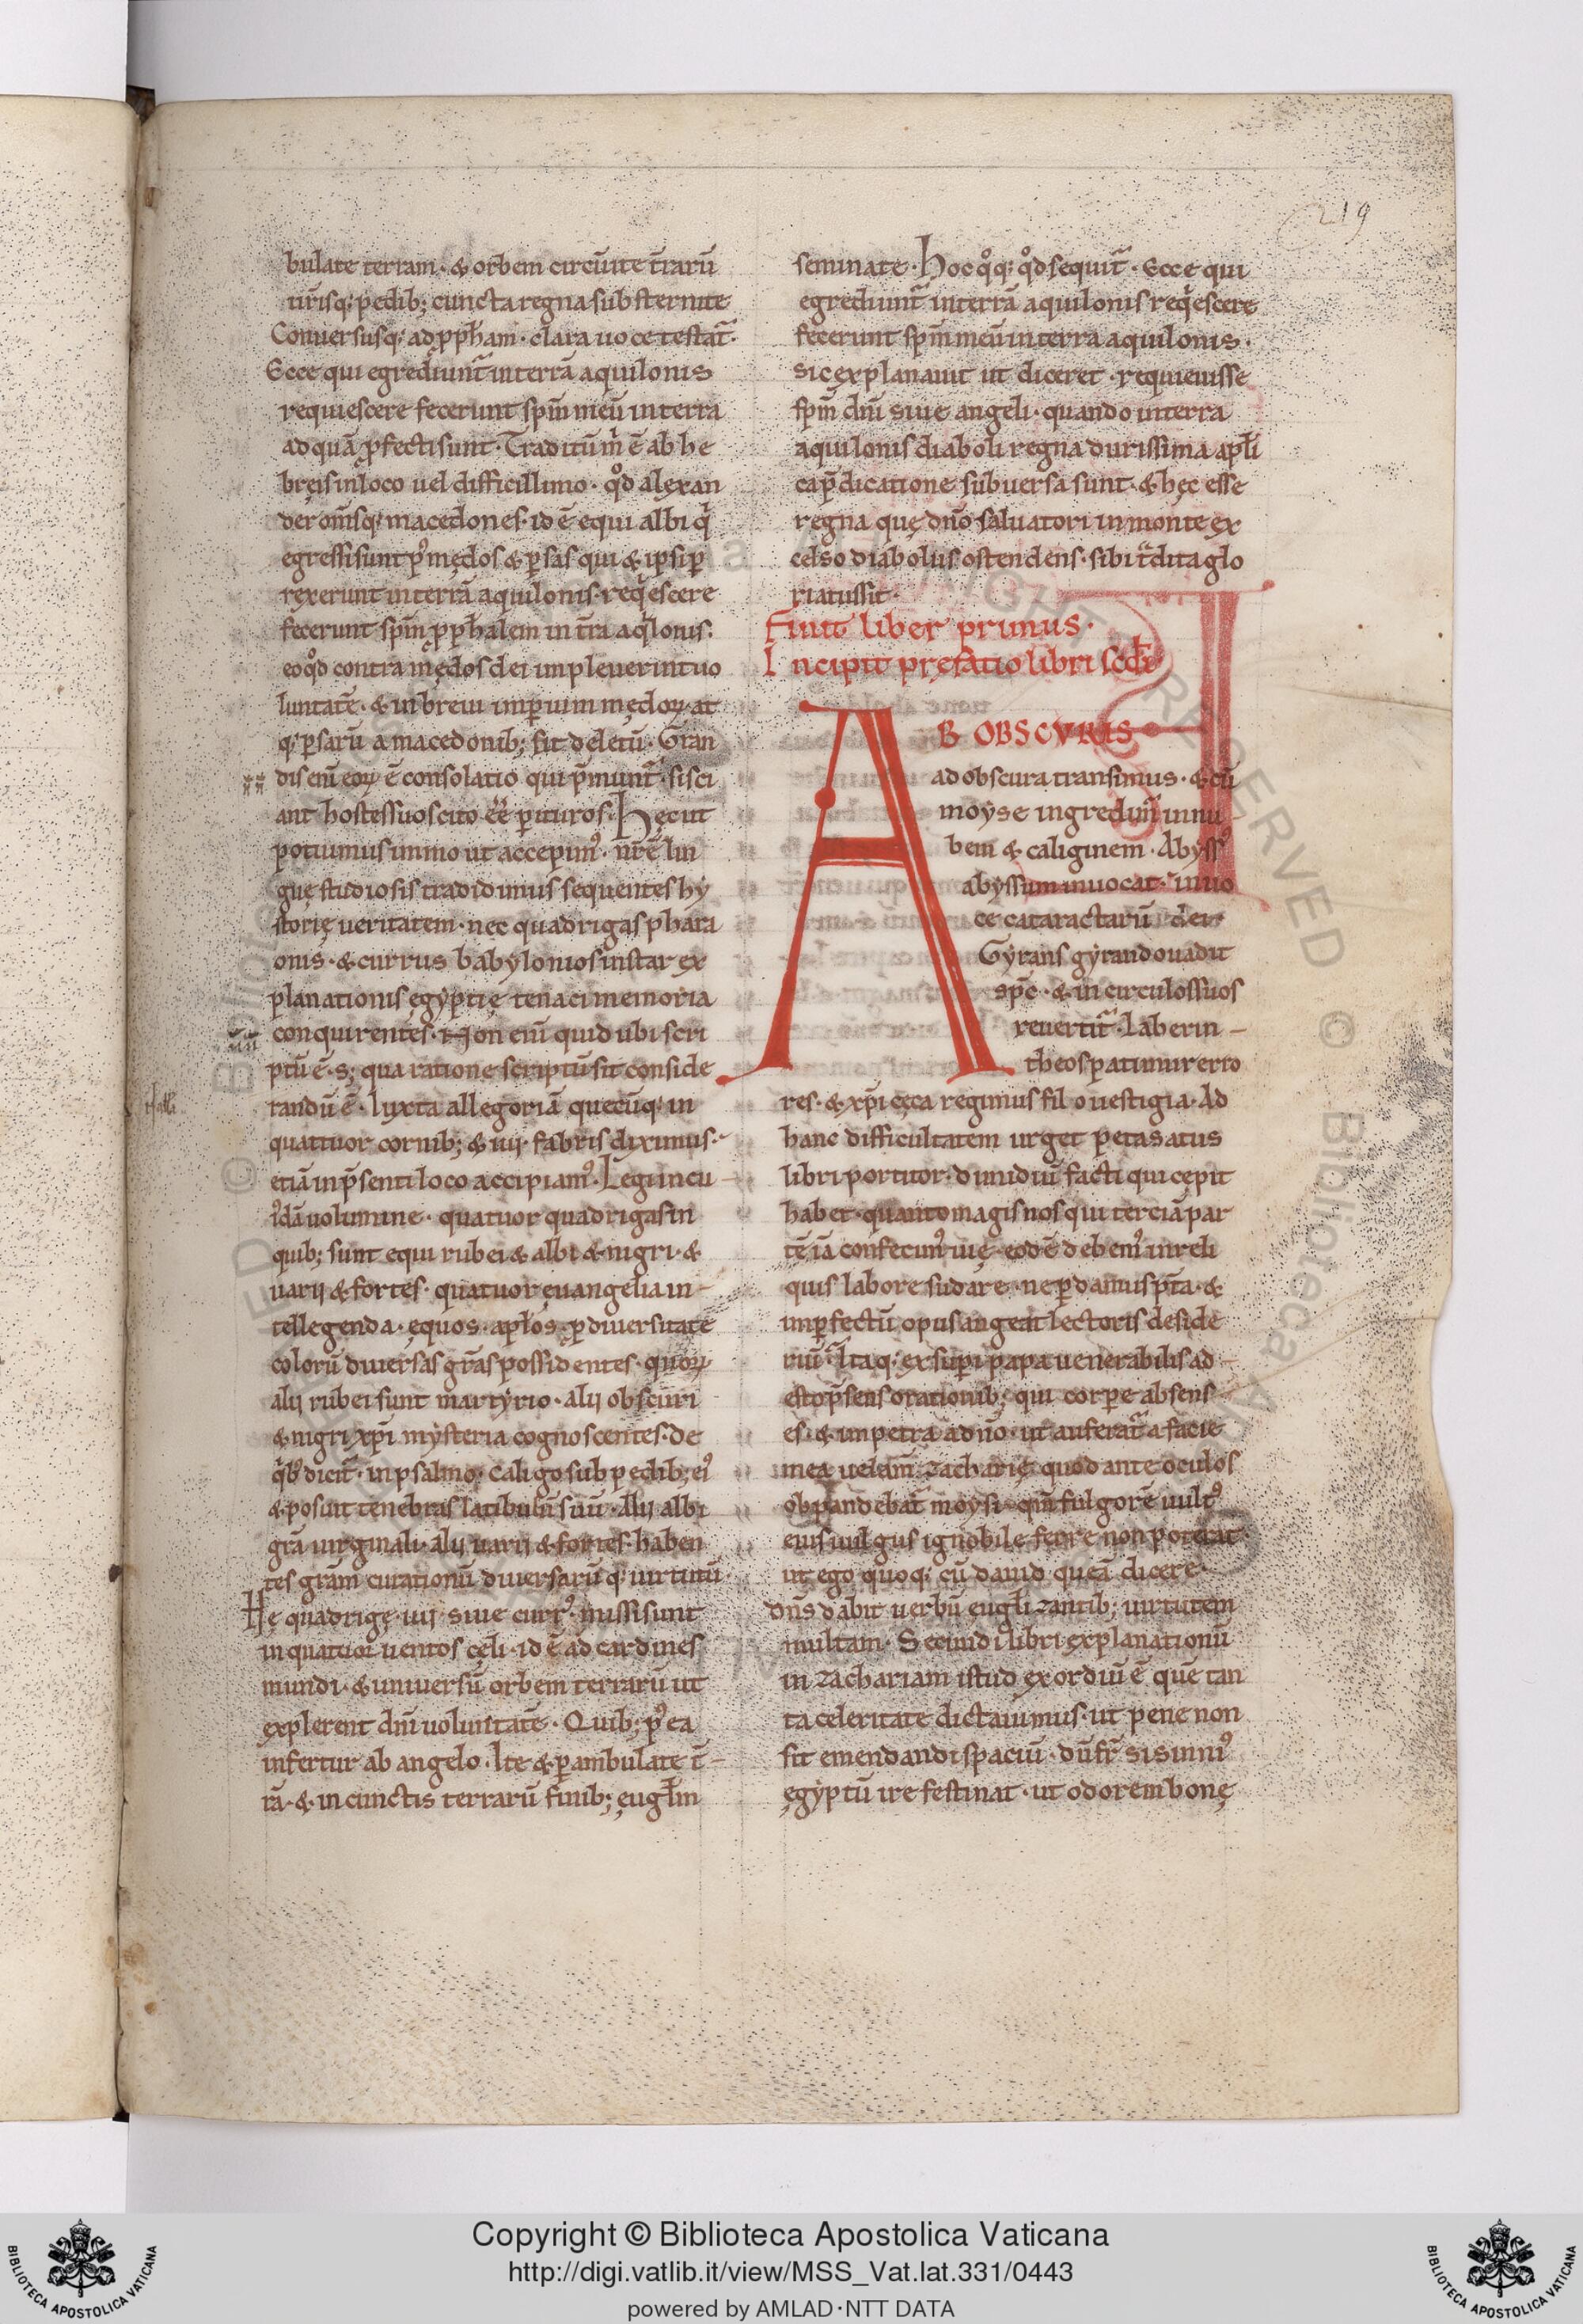 219
bulate terram · & orbem circūite t̄rarū
ur̄isq; pedib; cuncta regna sub sternite
Conuersusq; ad ꝓph̄am · clara uoce testat̄ ·
Ecce qui egrediunt̄ in terrā aquilonis
requiescere fecerunt sp̄m meū in terra
ad quā ꝓfecti sunt · Traditū m̄ ē ab he
breis in loco uel difficillimo · qd̊ alexan
der om̄sq; macedones · id ē equi albi q̇
egressi sunt p⁹ mędos & ꝑsas qui & ipsi ꝑ
rexerunt in terrā aquilonis · reqescere
fecerunt sp̄m ꝓph̄alem in t̄ra aqlonis ·
eo qd̊ contra mędos dei impleuerint uo
luntatē · & in breui imꝑium mędoꝝ at
q; ꝑsarū a macedonib; sit deletū · Gran
dis enī eoꝝ ē consolatio qui p̄munt̄ · si sci
ant hostes suos cito ēē ꝑituros · Hęc ut
potuimus immo ut accepim⁹ · nr̄ę lin
guę studiosis tradidimus sequentes hy
storię ueritatem · nec quadrigas phara
onis · & currus babylonios instar ex
planationis egyptię tenaci memoria
conquirentes · Non enī quid ubi scri
ptū ē · s; qua ratione scriptū sit conside
randū ē · Iuxta allegoriā quecūq; in
quattuor cornib; & iiij · fabris diximus ·
etiā in p̄senti loco accipiam⁹ · Legi in cu
idā uolumine · quatuor quadrigas in
quib; sunt equi rubei & albi & nigri · &
uarij & fortes · quatuor euangelia in-
tellegenda · equos · aplōs · ꝑ diuersitate
colorū diuersas gr̄as possidentes · quoꝝ
alij rubei sunt martyrio · alij obscuri
& nigri xp̄i mysteria cognoscentes · de
qb; dicit̄ · in psalmo · Caligo sub pedib; ei⁹
& posuit tenebras latibulū suū · Alij albi
gr̄a uirginali · alij uarij & fortes · haben
tes gr̄am curationū diuersarūq; uirtutū ·
Hę quadrigę iiij · siue curr⁹ · missi sunt
in quatuor uentos cęli · id ē ad cardines
mundi · & uniuersū orbem terrarū ut
explerent dn̄i uoluntatē · Quib; p⁹ ea
infertur ab angelo · Ite & ꝑambulate t̄-
rā · & in cunctis terrarū finib; eugl̄m
seminate · Hoc q̊q; qd̊ sequit̄ · Ecce qui
egrediunt̄ in terrā aquilonis reqescere
fecerunt sp̄m meū in terra aquilonis ·
sic explanauit ut diceret · requieuisse
sp̄m dn̄i siue angeli · quando in terra
aquilonis diaboli regna durissima apl̄i
ca p̄dicatione subuersa sunt · & hęc esse
regna quę dn̄o saluatori in monte ex
celso diabolus ostendens · sibi t̄dita glo
riatus sit ·
Finit liber primus ·
Incipit prefatio libri scd̄i
AB OBSCVRIS
ad obscura transimus · & cū
moyse ingredim̄ in nu
bem & caliginem · Abyss⁹
abyssum inuocat · in uo
ce cataractarū dei ·
Gyrans gyrando uadit
sp̄c · & in circulos suos
reuertit̄ · Laberin-
theos patimur erro
res · & xp̄i cęca regimus filo uestigia · Ad
hanc difficultatem urget petasatus
libri portitor · dimidiū facti qui cepit
habet · quanto magis nos qui terciā par
tē iā confecim⁹ · uię · eodē debem⁹ in reli
quis labore sudare · ne ꝑdamus p̄ta · &
imꝑfectū opus angeat lectoris deside
riū · Itaq; exsuperi papa uenerabilis ad-
esto p̄sens orationib; qui corpe absens
es · & impetra a dn̄o · ut auferat̄ a facie
mea uelam̄ zacharię quod ante oculos
obpandebat moysi · qm̄ fulgorē uult⁹
eius uulgus ignobile ferre non poterat ·
ut ego quoq; cū dauid queā dicere ·
Dn̄s dabit uerbū eugl̄izantib; uirtutem
multam · Secundi libri explanationū
in zachariam istud exordiū ē quē tan
ta celeritate dictauimus · ut pene non
sit emendandi spaciū · dū fr̄ sisinni⁹
egyptū ire festinat · ut odorem bonę
Copyright © Biblioteca Apostolica Vaticana
http://digi.vatlib.it/view/MSS_Vat.lat.331/0443
powered by AMLAD·NTT DATA
BIBLIOTECA APOSTOLICA VATICANA
BIBLIOTECA APOSTOLICA VATICANA